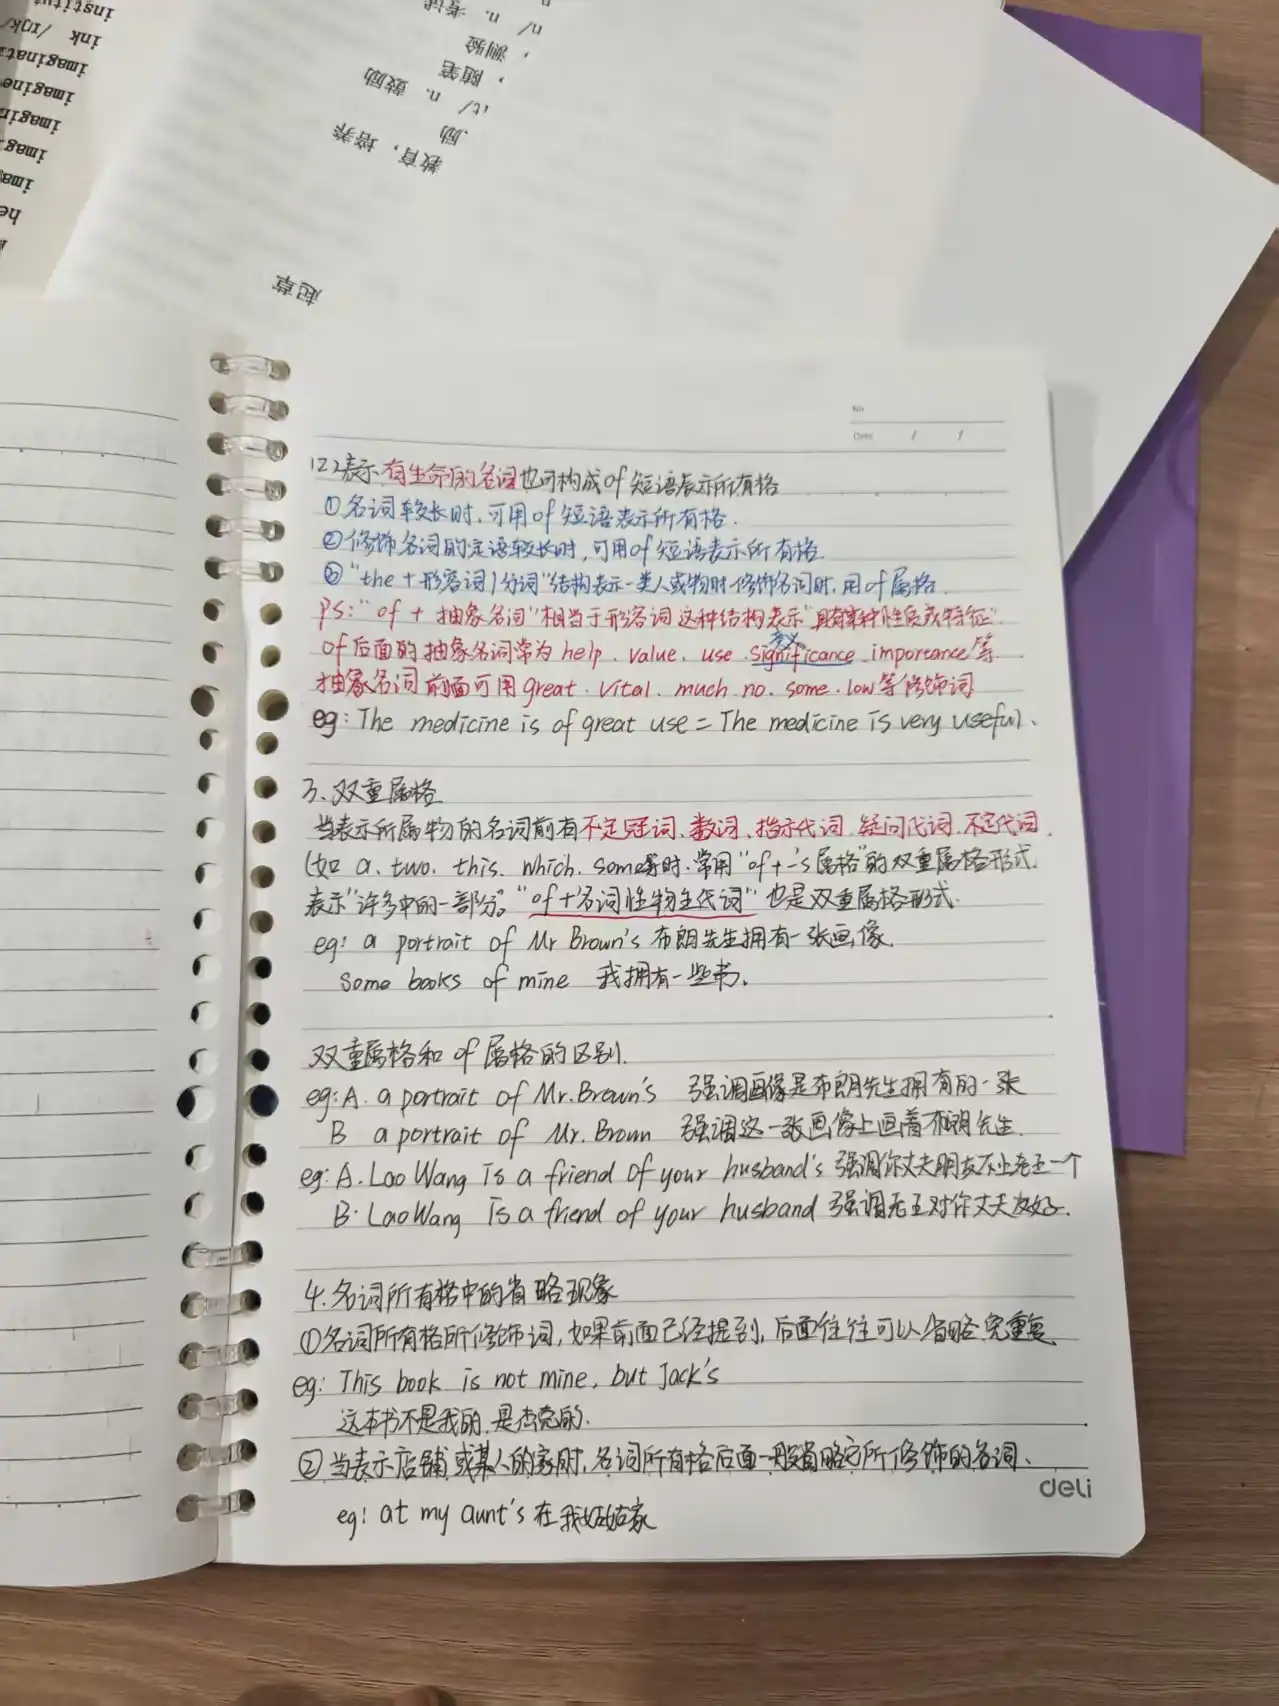 institut
ink /ɪŋk/
imaginati
imagine
imagin
imagi
ima
he
n/ n. 考试
，测验
，随笔
it/ n. 鼓励
励
教育，培养
起草
No.
Date / /
(2)表示有生命的名词也可构成of短语表示所有格
①名词较长时,可用of短语表示所有格.
②修饰名词的定语较长时,可用of短语表示所有格.
③"the+形容词/分词"结构表示一类人或物时修饰名词时,用of属格.
PS:"of + 抽象名词"相当于形容词 这种结构表示"具有某种性质或特征".
意义
of后面的抽象名词常为help. value. use. significance. importance等
抽象名词前面可用great. vital. much. no. some. low等修饰词
eg: The medicine is of great use = The medicine is very useful.
3.双重属格
当表示所属物的名词前有不定冠词、数词、指示代词、疑问代词、不定代词.
(如 a. two. this. which. some等时.常用"of+-'s属格"的双重属格形式.
表示"许多中的一部分"。"of+名词性物主代词"也是双重属格形式.
eg: a portrait of Mr Brown's 布朗先生拥有一张画像.
Some books of mine 我拥有一些书.
双重属格和of属格的区别.
eg:A. a portrait of Mr.Brown's 强调画像是布朗先生拥有的一张
B a portrait of Mr.Brown 强调这一张画像上画着布朗先生.
eg: A.Lao Wang is a friend of your husband's 强调你丈夫朋友不止老王一个
B.LaoWang is a friend of your husband 强调老王对你丈夫友好.
4.名词所有格中的省略现象
①名词所有格所修饰词,如果前面已经提到,后面往往可以省略免重复.
eg: This book is not mine, but Jack's
这本书不是我的,是杰克的.
②当表示店铺或某人的家时,名词所有格后面一般省略它所修饰的名词.
deli
eg: at my aunt's 在我姑姑家